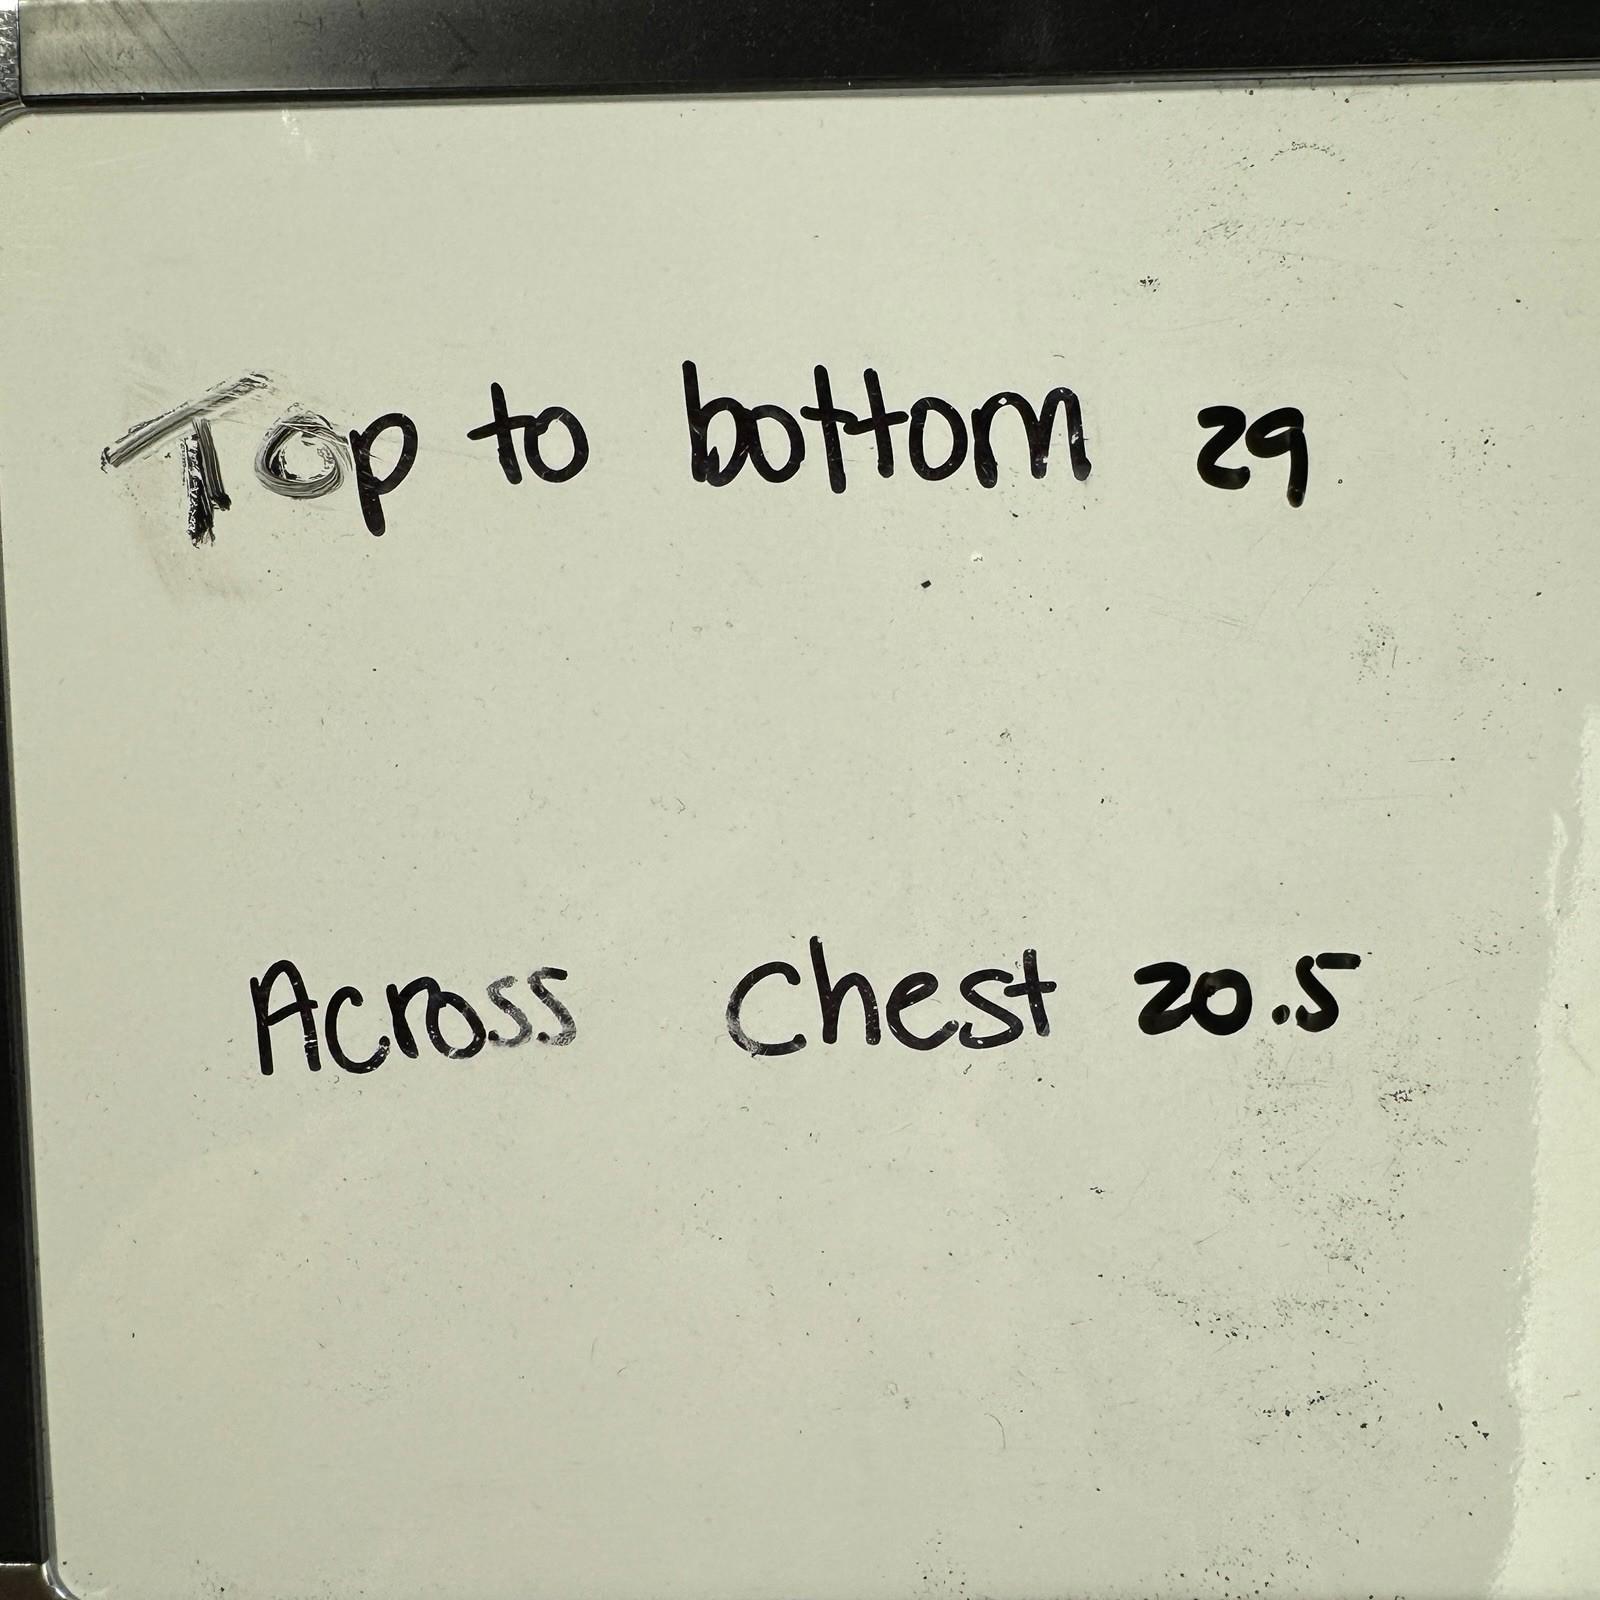 Top to bottom 29
Across Chest 20.5